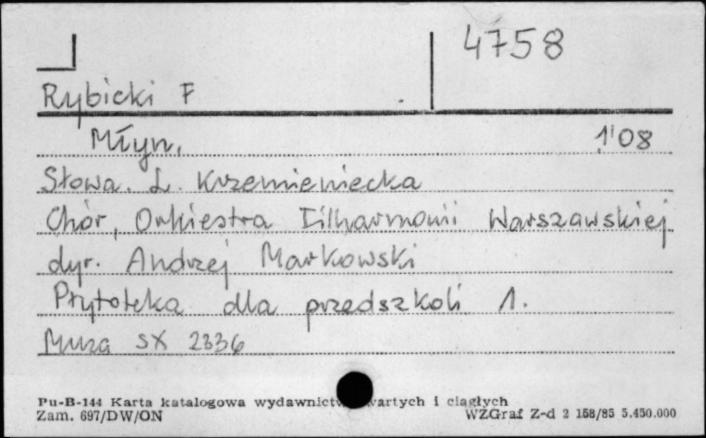 4758
Rybicki F
Młyn. 1'08
Słowa. L. Krzemieniecka
Chór, Orkiestra Filharmonii Warszawskiej
dyr. Andrzej Markowski
Płytoteka dla przedszkoli 1.
Muza SX 2336
Pu-B-144 Karta katalogowa wydawnictw zwartych i ciągłych
Zam. 697/DW/ON WZGraf Z-d 2 158/85 5.450.000